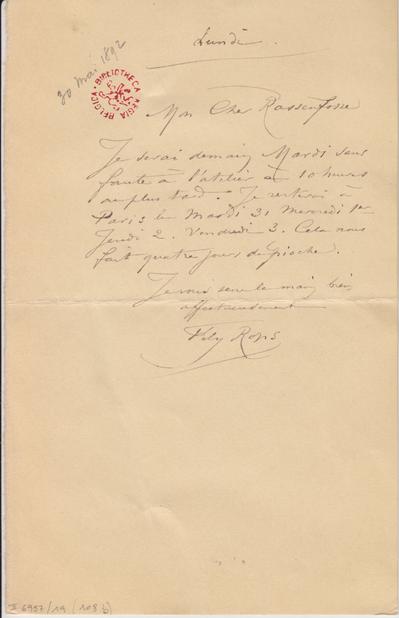 Lundi
30 mai 1892
BIBLIOTHECA REGIA BELGICA
Mon Cher Rassenfosse
Je serai demain Mardi sans
faute à l'atelier à 10 heures
au plus tard. Je resterai à
Paris le Mardi 31 Mercredi 1er
Jeudi 2. Vendredi 3. Cela nous
fait quatre jours de pioche.
Je vous serre la main bien
affectueusement
Fély Rops
II 6957/19 (108 b)